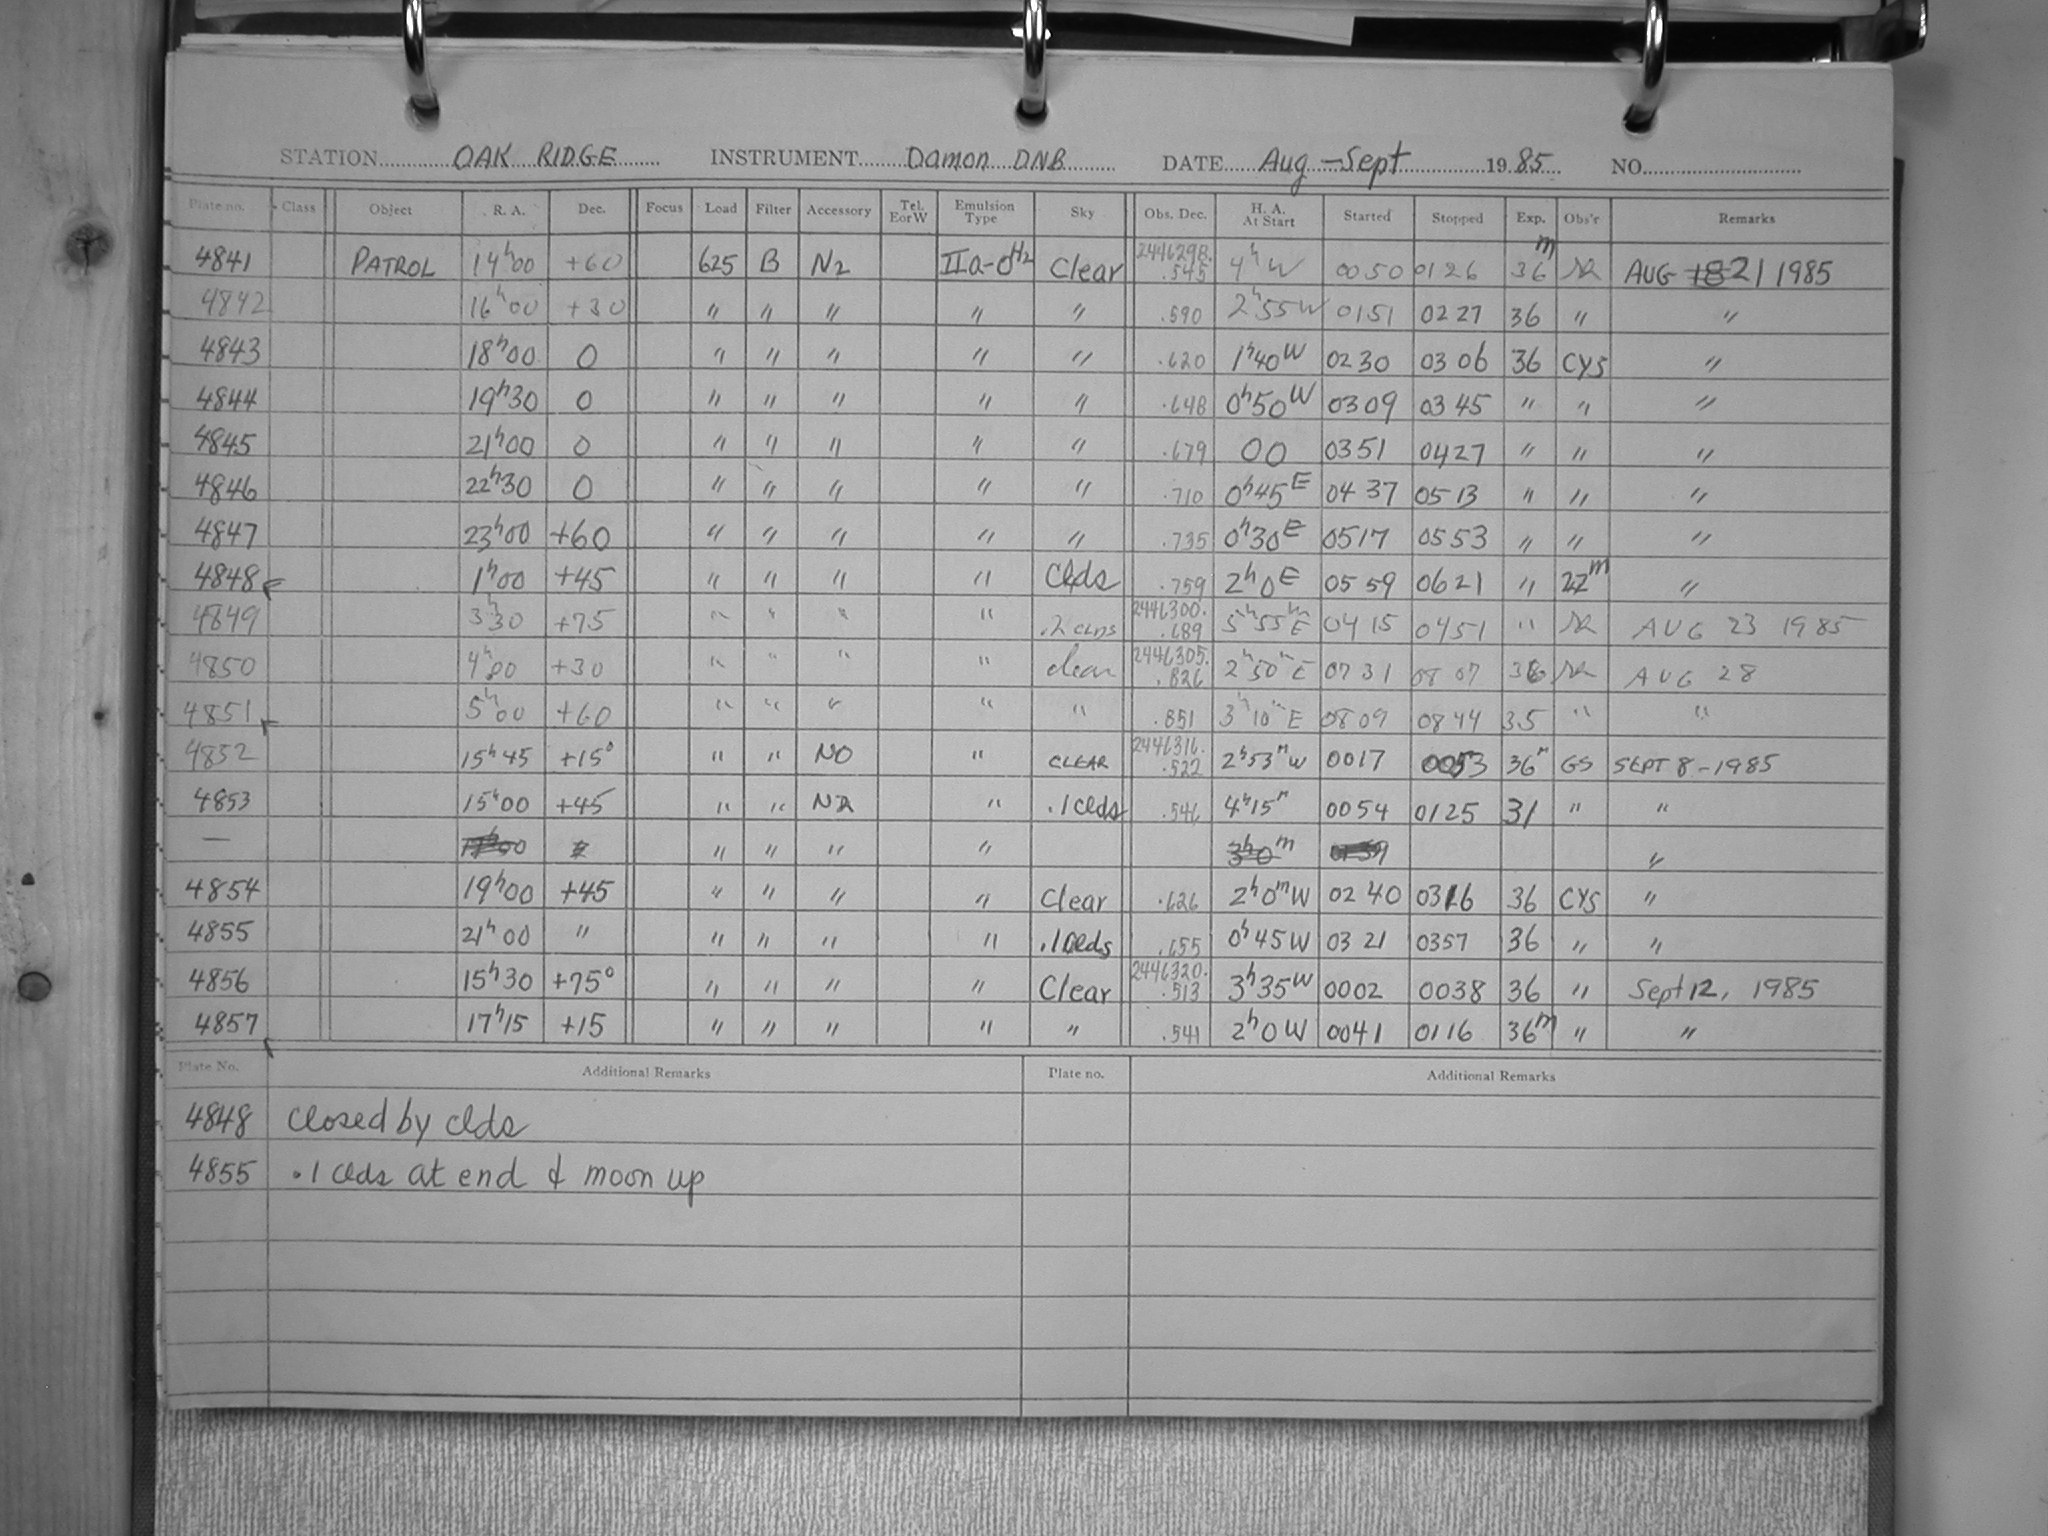 STATION OAK RIDGE INSTRUMENT Damon DNB DATE Aug-Sept 1985 NO.
Plate no. Class Object R. A. Dec. Focus Load Filter Accessory Tel. E or W Emulsion Type Sky Obs. Dec. H. A. At Start Started Stopped Exp. Obs'r Remarks
4841 PATROL 14h00 +60 625 B N2 IIa-O H2 Clear 2446298.545 4h W 0050 0126 36m AUG 21 1985
4842 16h00 +30 " " " " " .590 2h55W 0151 0227 36 " "
4843 18h00 0 " " " " " .620 1h40W 0230 0306 36 CYS "
4844 19h30 0 " " " " " .648 0h50W 0309 0345 " " "
4845 21h00 0 " " " " " .679 00 0351 0427 " " "
4846 22h30 0 " " " " " .710 0h45E 0437 0513 " " "
4847 23h00 +60 " " " " " .735 0h30E 0517 0553 " " "
4848 1h00 +45 " " " " Clds .759 2h0E 0559 0621 " 22m "
4849 3h30 +75 " " " " .2 2446300.689 5h55mE 0415 0451 " AUG 23 1985
4850 4h00 +30 " " " " clear 2446305.826 2h50mE 0731 0807 36 AUG 28
4851 5h00 +60 " " " " " .851 3h10mE 0809 0844 35 " "
4852 15h45 +15° " " NO " CLEAR 2446316.522 2h53mW 0017 0053 36m GS SEPT 8-1985
4853 15h00 +45 " " " .1 Clds .546 4h15m 0054 0125 31 " "
— " " " " 3h0m "
4854 19h00 +45 " " " " Clear .626 2h0mW 0240 0316 36 CYS "
4855 21h00 " " " " " .1 Clds .655 0h45W 0321 0357 36 " "
4856 15h30 +75° " " " " Clear 2446320.513 3h35W 0002 0038 36 " Sept 12, 1985
4857 17h15 +15 " " " " " .541 2h0W 0041 0116 36m " "
Plate No. Additional Remarks Plate no. Additional Remarks
4848 Closed by clds
4855 .1 clds at end & moon up